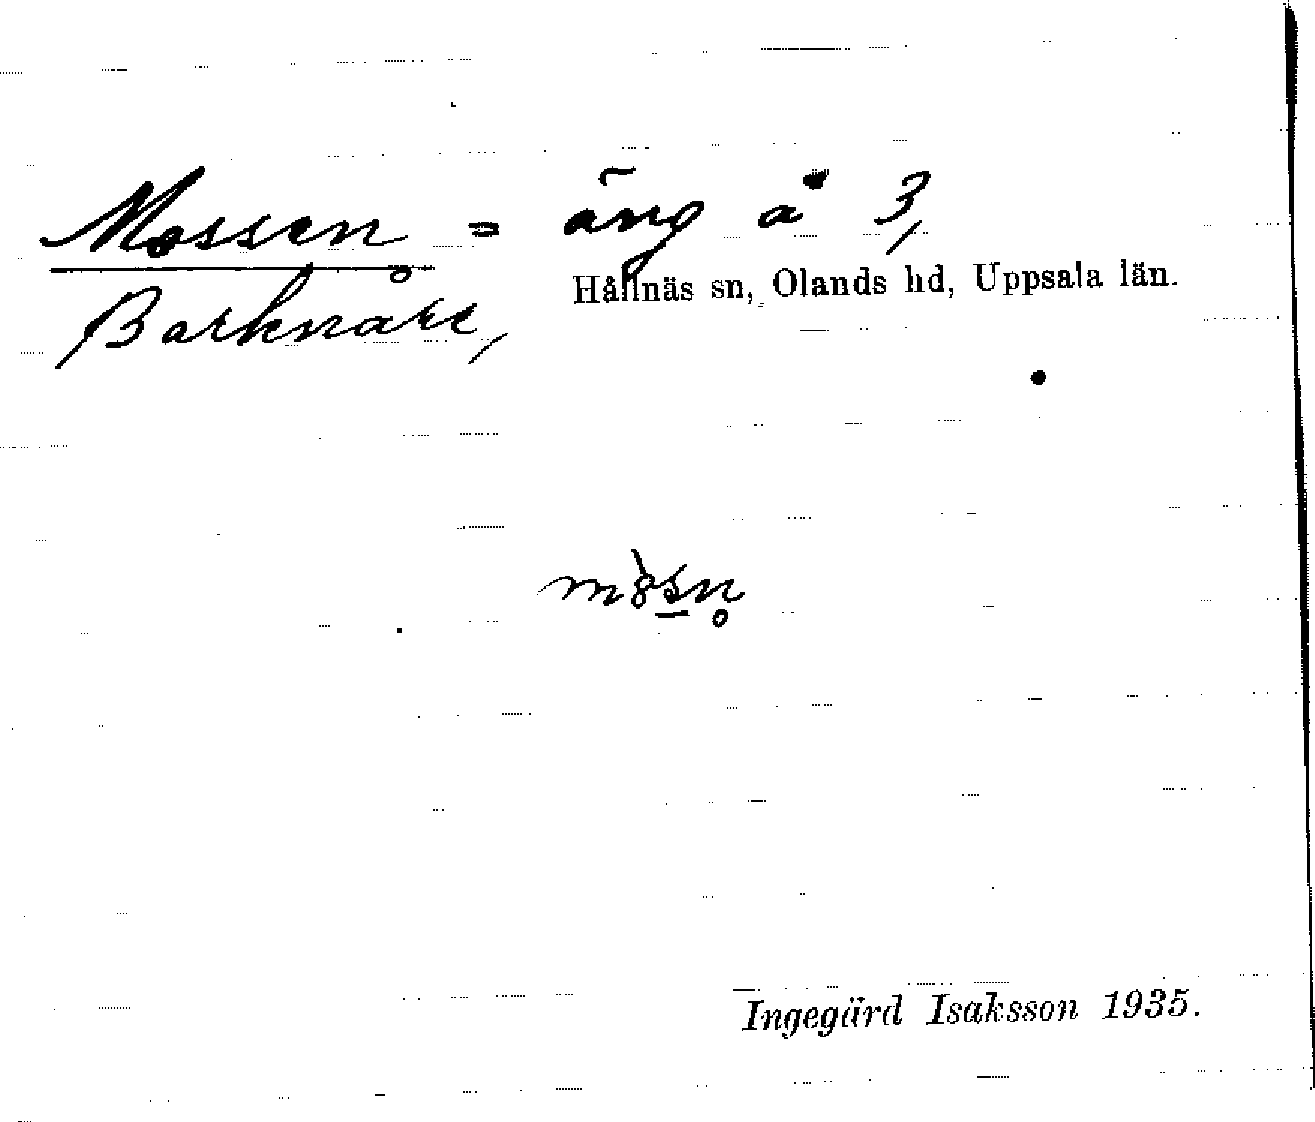 Mossen = äng å 3,
Hållnäs sn, Olands hd, Uppsala län.
Barknåre,
mòsn̥
Ingegärd Isaksson 1935.